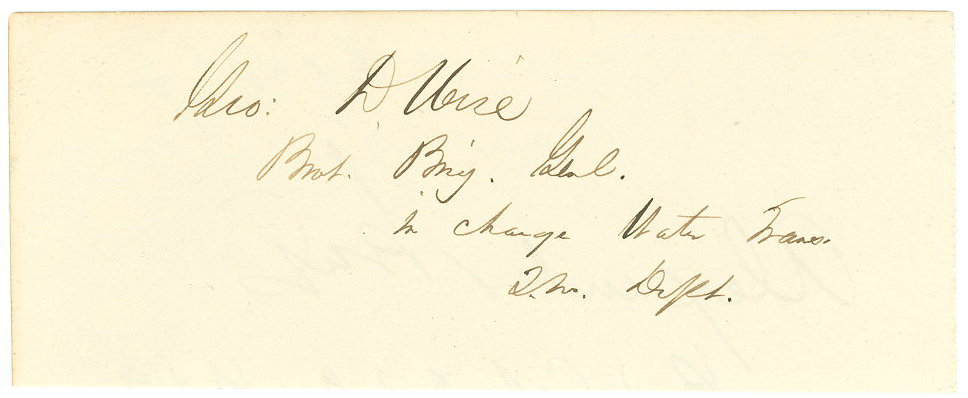 Geo: D Wise
Bvt. Brig. Genl.
in charge Water Trans.
Q.M. Dept.